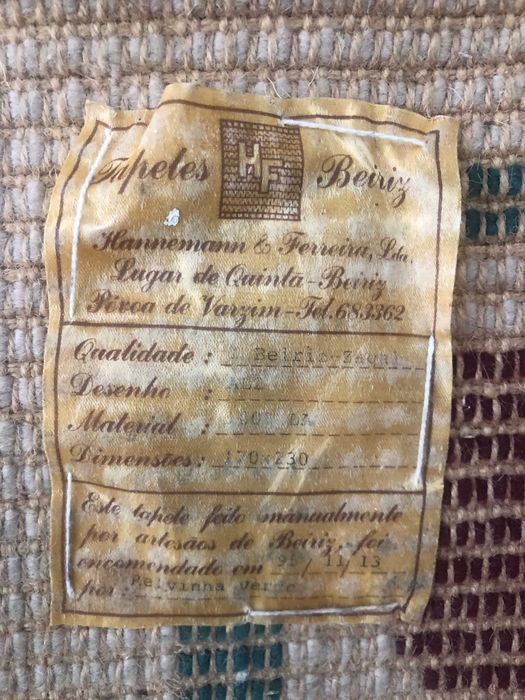 Tapetes HF Beiriz
Hannemann & Ferreira, Lda.
Lugar de Quintã - Beiriz
Póvoa de Varzim - Tel. 683362
Qualidade : Beiriz-Zagal
Desenho :
Material :
Dimensões : 170x230
Este tapete feito manualmente
por artesãos de Beiriz, foi
encomendado em 95/11/13
por Relvinha Verde